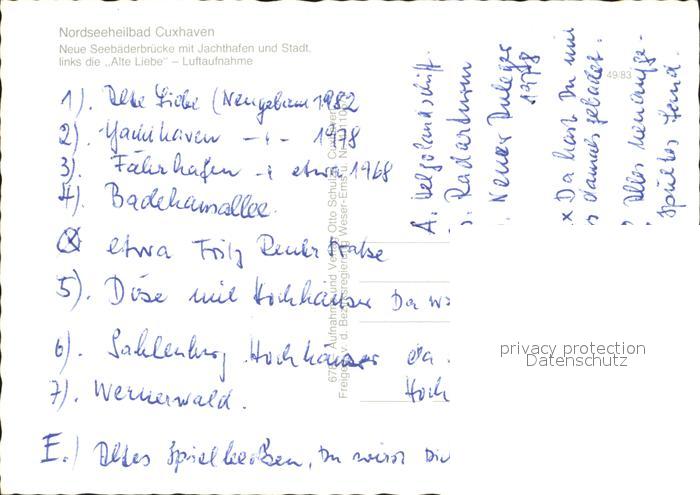 Nordseeheilbad Cuxhaven
Neue Seebäderbrücke mit Jachthafen und Stadt,
links die „Alte Liebe" – Luftaufnahme
49/83
1). Alte Liebe (Neugebaut 1982
2). Yachthaven –"– 1978
3). Fährhafen –" etwa 1968
4). Badehausallee.
X etwa Fritz Reuter Straße
5). Döse mit Hochhäuser Da
6). Sahlenburg Hochhäuser da
7). Wernerwald. Hoch
E.) Altes Spiel, Du wirst Di
A. Helgolandschiff.
Radarturm
Neuer Anleger
1978
x Da hast Du mi
damals gebadet.
Alles neu aufge-
spültes Land.
Aufnahme und Verlag Otto Schulze, Cuxhaven
Freigeg. v. d. Bezirksregierung Weser-Ems u. Nr.
privacy protection
Datenschutz